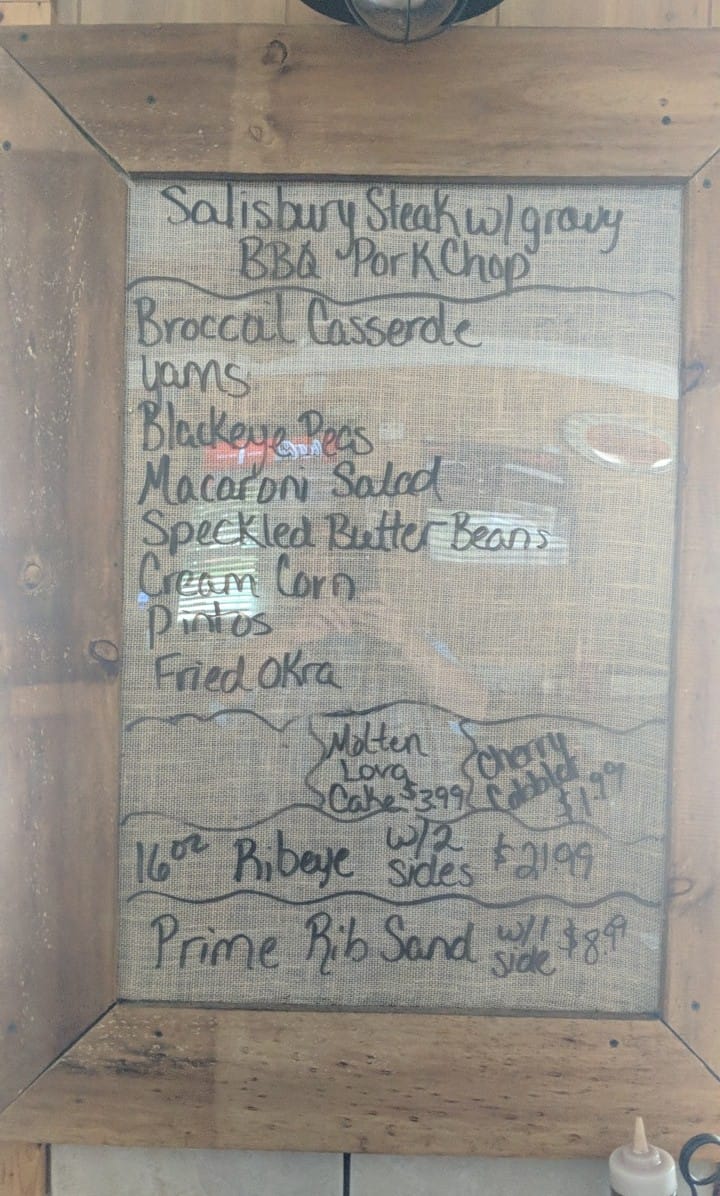 Salisbury Steak w/gravy
BBQ Pork Chop
Broccoil Casserole
Yams
Blackeye Peas
Macaroni Salad
Speckled Butter Beans
Cream Corn
Pintos
Fried Okra
Molten
Lava
Cake $3.99
Cherry
Cobbler
$1.99
16oz Ribeye w/2 sides $21.99
Prime Rib Sand w/1 side $8.99